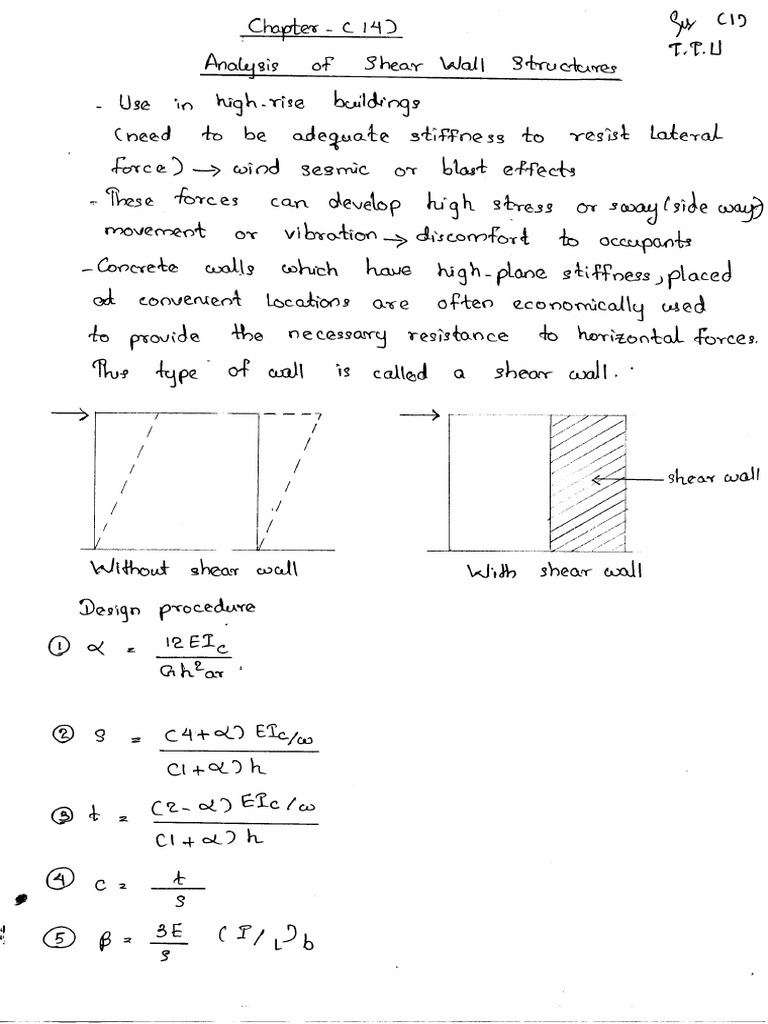 Chapter - (14)
Sys (1)
T.T.U
Analysis of Shear Wall Structures
- Use in high-rise buildings
(need to be adequate stiffness to resist Lateral
force) → wind sesmic or blast effects
- These forces can develop high stress or sway (side way)
movement or vibration → discomfort to occupants
- Concrete walls which have high-plane stiffness, placed
at convenient locations are often economically used
to provide the necessary resistance to horizontal forces.
This type of wall is called a shear wall.
shear wall
Without shear wall
With shear wall
Design procedure
① α = 12EIc / Gh²ar
② s = (4+α) EIc/ω / (1+α) h
③ t = (2-α) EIc/ω / (1+α) h
④ c = t / s
⑤ β = 3E / s (I/L)b